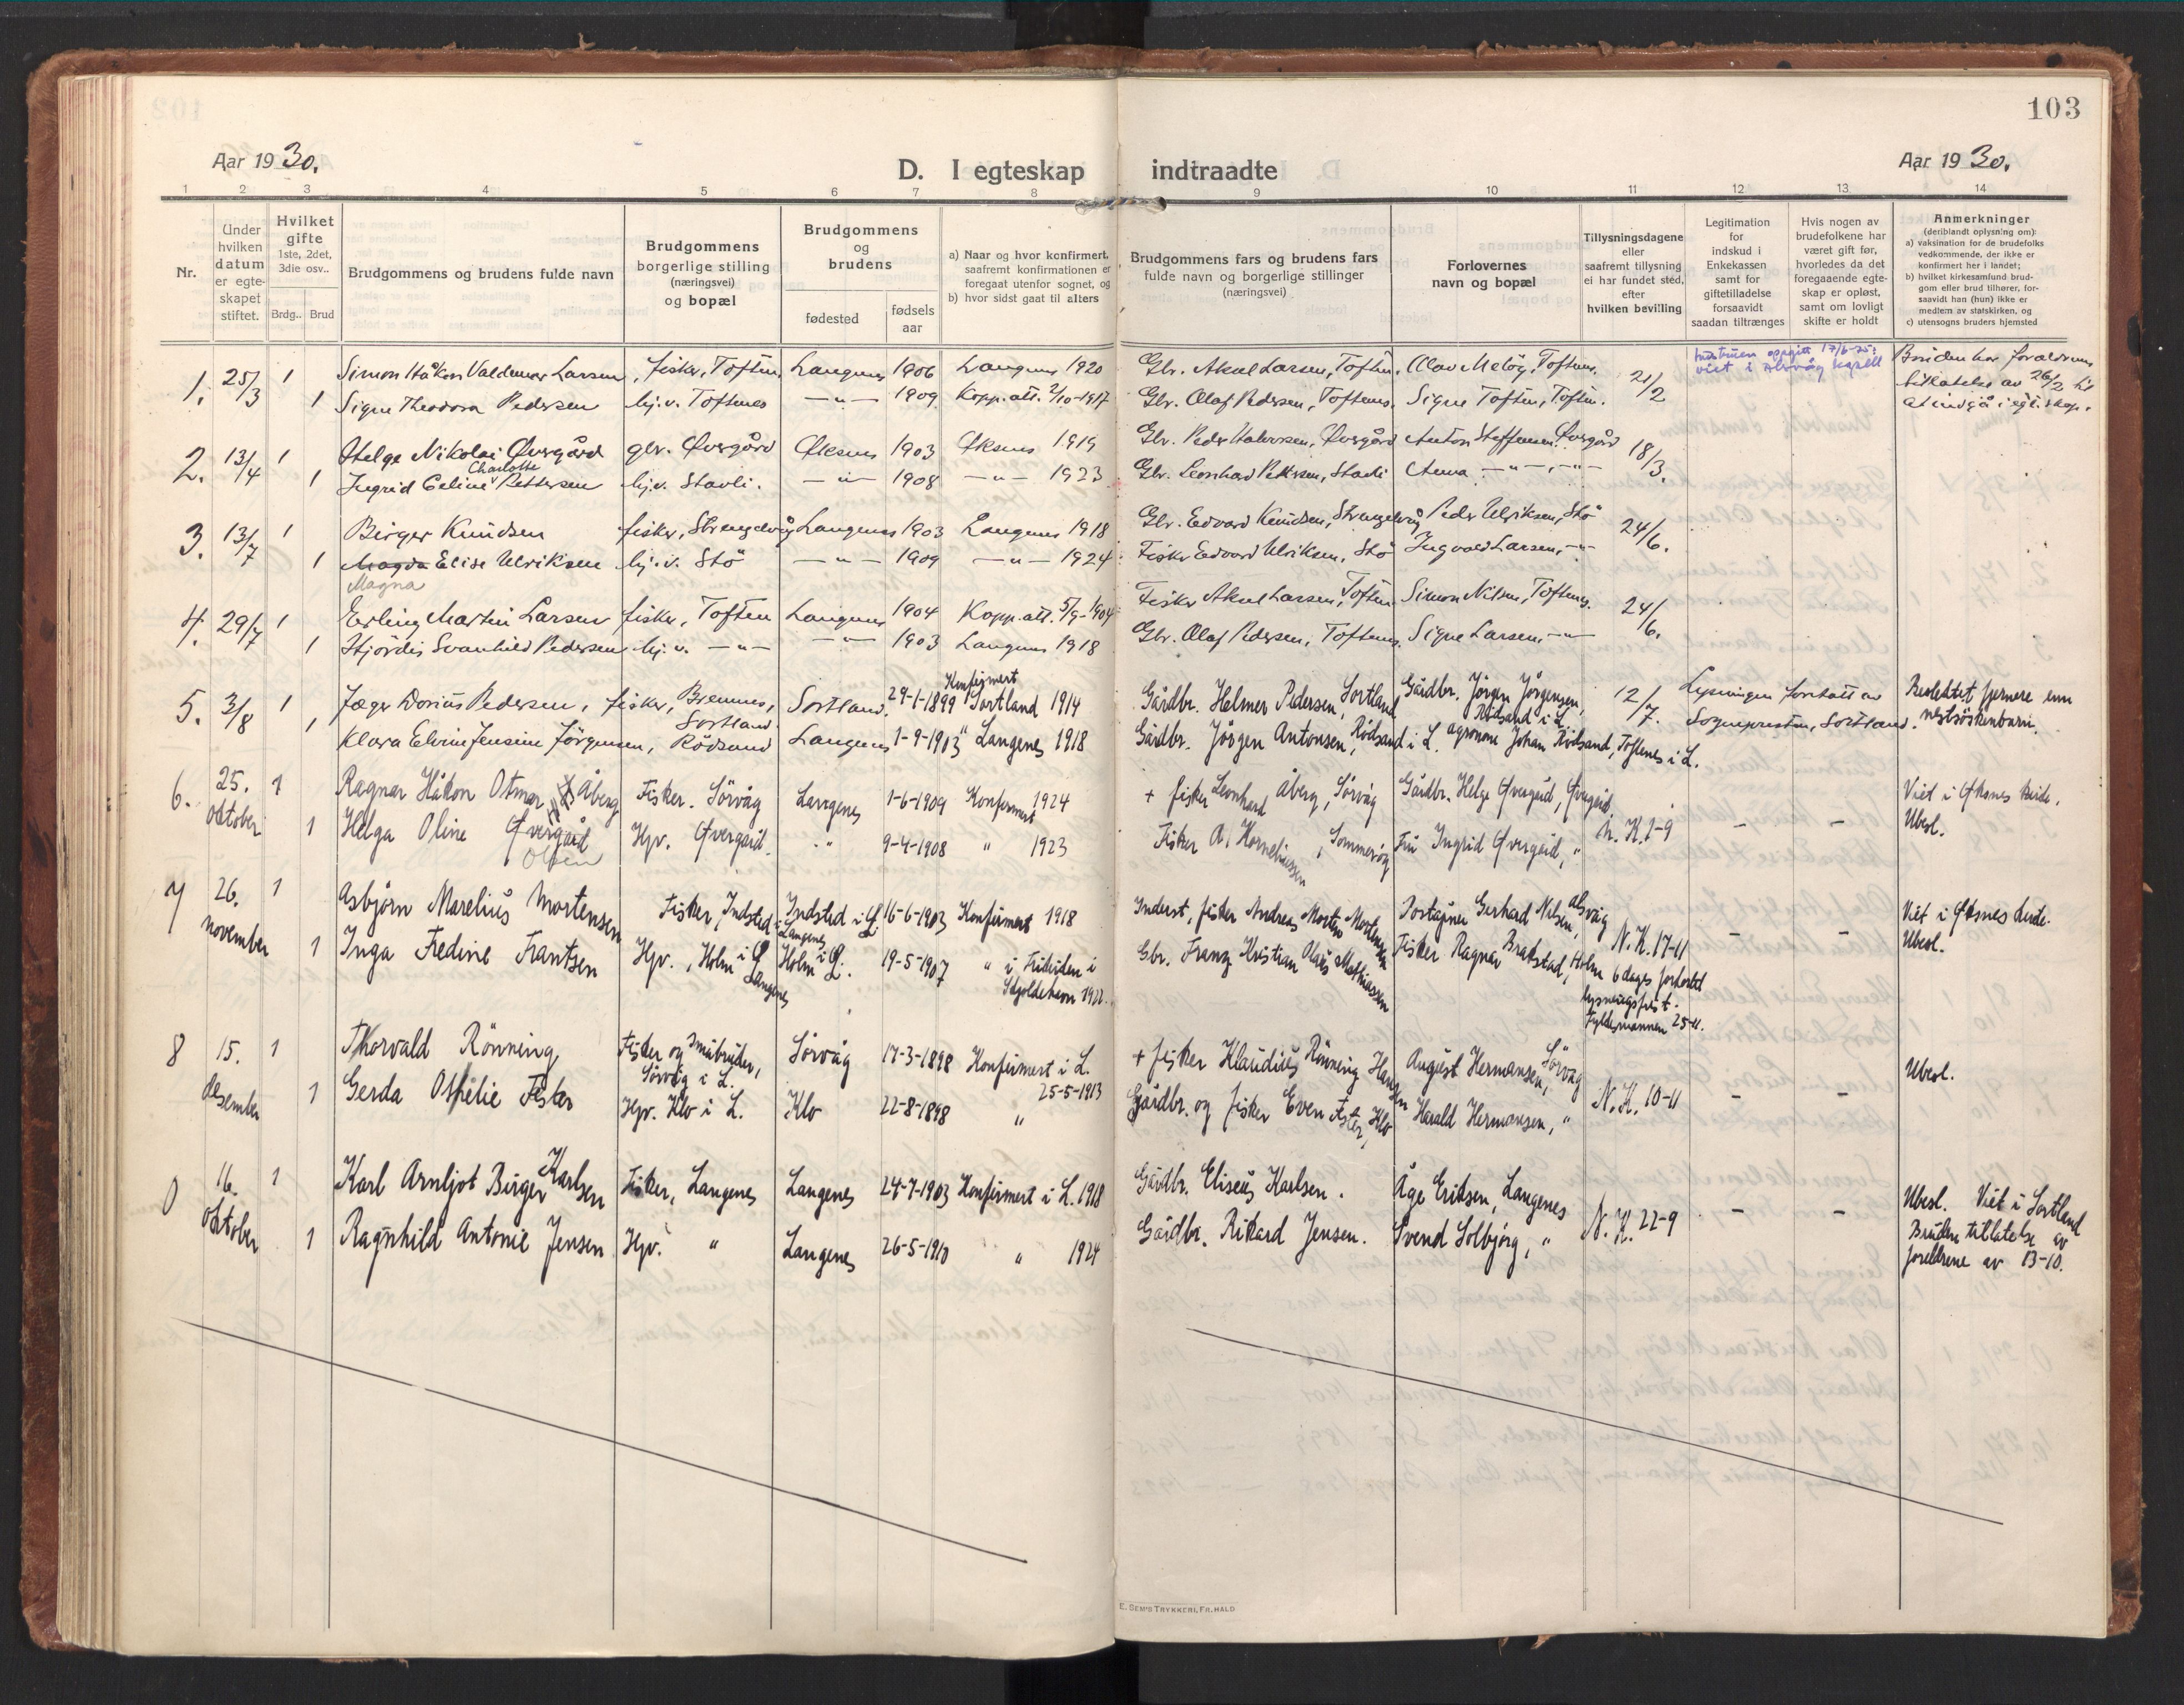 103
Aar 1930.
D. I egteskap indtraadte
Aar 1930.
1 2 3 4 5 6 7 8 9 10 11 12 13 14
Nr.
Under hvilken datum er egteskapet stiftet.
Hvilket gifte 1ste, 2det, 3die osv..
Brdg.. Brud
Brudgommens og brudens fulde navn
Brudgommens borgerlige stilling (næringsvei) og bopæl
Brudgommens og brudens
fødested
fødsels aar
a) Naar og hvor konfirmert, saafremt konfirmationen er foregaat utenfor sognet, og
b) hvor sidst gaat til alters
Brudgommens fars og brudens fars fulde navn og borgerlige stillinger (næringsvei)
Forlovernes navn og bopæl
Tillysningsdagene eller saafremt tillysning ei har fundet sted, efter hvilken bevilling
Legitimation for indskud i Enkekassen samt for giftetilladelse forsaavidt saadan tiltrænges
Hvis nogen av brudefolkene har været gift før, hvorledes da det foregaaende egteskap er opløst, samt om lovligt skifte er holdt
Anmerkninger (deriblandt oplysning om):
a) vaksination for de brudefolks vedkommende, der ikke er konfirmert her i landet;
b) hvilket kirkesamfund brudgom eller brud tilhører, forsaavidt han (hun) ikke er medlem av statskirken, og
c) utensogns bruders hjemsted
1. 25/3 1 Simon Håkon Valdemar Larsen, fisker, Toften. Langenes 1906 Langenes 1920 Gbr. Aksel Larsen, Toften. Olav Meløy, Toftenes. 21/2 viet i Alsvåg kapell Bruden har forældrenes
1 Signe Theodora Pedersen hj.v. Toftenes -"- 1909 Kopp.att. 2/10-1917 Gbr. Olaf Pedersen, Toftenes. Signe Toften, Toften. tillatelse av 26/2 til
at indgå i egteskap.
2. 13/4 1 Helge Nikolai Øvergård gbr. Øvergård Øksnes 1903 Øksnes 1919 Gbr. Peder Halvorsen, Øvergård Anton Steffensen, Øvergård 18/3.
Charlotte
1 Ingrid Celine Pettersen hj.v. Stavli. -"- 1908 -"- 1923 Gbr. Leonhard Pettersen, Stavli Anna -"-,-"-
3. 13/7 1 Birger Knudsen fisker, Strengelvåg Langenes 1903 Langenes 1918 Gbr. Edvard Knudsen, Strengelvåg Peder Ulriksen, Stö 24/6.
1 Magda Elise Ulriksen hj.v. Stö -"- 1909 -"- 1924 Fisker Edvard Ulriksen, Stö Ingvald Larsen, -"-
Magna
4. 29/7 1 Erling Martin Larsen fisker, Toften Langenes 1904 Kopp.att. 5/9-1904 Fisker Aksel Larsen, Toften Simon Nilsen, Toftenes. 24/6.
1 Hjördis Svanhild Pedersen hj.v. -"- -"- 1903 Langenes 1918 Gbr. Olaf Pedersen, Toftenes. Signe Larsen, -"-
5. 3/8 1 Jæger Dorius Pedersen, fisker, Bremnes, Sortland Sortland. 29-1-1899 Konfirmert Sortland 1914 Gårdbr. Helmer Pedersen, Sortland Gårdbr. Jörgen Jörgensen, Rödsand i L. 12/7. Lysningen foretatt av Sognepresten, Sortland. Beslektet fjernere enn nestsöskenbarn.
1 Klara Elvine Jensine Jörgensen, Rödsand Langenes 1-9-1903 " Langenes 1918 Gårdbr. Jörgen Antonsen, Rödsand i L. agronom Johan Rödsand, Toftenes i L.
6. 25. oktober 1 Ragnar Håkon Otmar Åberg Fisker. Sörvåg Langenes 1-6-1909 Konfirmert 1924 + fisker Leonhard Åberg, Sörvåg Gårdbr. Helge Øvergård, Øvergård. N.K. 1-9 Viet i Øksnes kirke.
1 Helga Oline Øvergård Hpv. Øvergård. " 9-4-1908 " 1923 Fisker A. Korneliussen, Sommeröy Fru Ingrid Øvergård, " - - Ubesl.
Olsen
7 26. november 1 Asbjörn Marelius Mortensen Fisker, Indsted i Langenes Indsted i L. 16-6-1903 Konfirmert 1918 Inderst, fisker Andreas Morten Mortensen Poståpner Gerhard Nilsen, Alsvåg N.K. 17-11 - - Viet i Øksnes kirke.
1 Inga Fredine Frantsen Hpv., Holm i Langenes Holm i L. 19-5-1907 " i Frikirken i Skjoldehavn 1922. Gbr. Franz Kristian Olaus Mathiassen Fisker Ragnar Brakstad, Holm 6 dages forkortet lysningsfrist. Fylkesmannen 25-11. Ubesl.
8 15. desember 1 Thorvald Rönning Fisker og småbruker, Sörvåg i L. Sörvåg 17-3-1898 Konfirmert i L. 25-5-1913 + fisker Klaudius Rönning Hansen August Hermansen, Sörvåg N.K. 10-11 - - Ubesl.
1 Gerda Othelie Fisker Hpv. Klo i L. Klo 22-8-1898 " Gårdbr. og fisker Even Fisker, Klo Harald Hermansen, "
0 16. oktober 1 Karl Arnljot Birger Karlsen Fisker, Langenes Langenes 24-7-1903 Konfirmert i L. 1918 Gårdbr. Eliseus Karlsen. Åge Eriksen, Langenes N.K. 22-9 - - Ubesl. Viet i Sortland
1 Ragnhild Antonie Jensen Hpv. " Langenes 26-5-1910 " 1924 Gårdbr. Rikard Jensen. Svend Solbjörg, " Brudens tillatelse av foreldrene av 13-10.
E. SEM'S TRYKKERI, FR.HALD